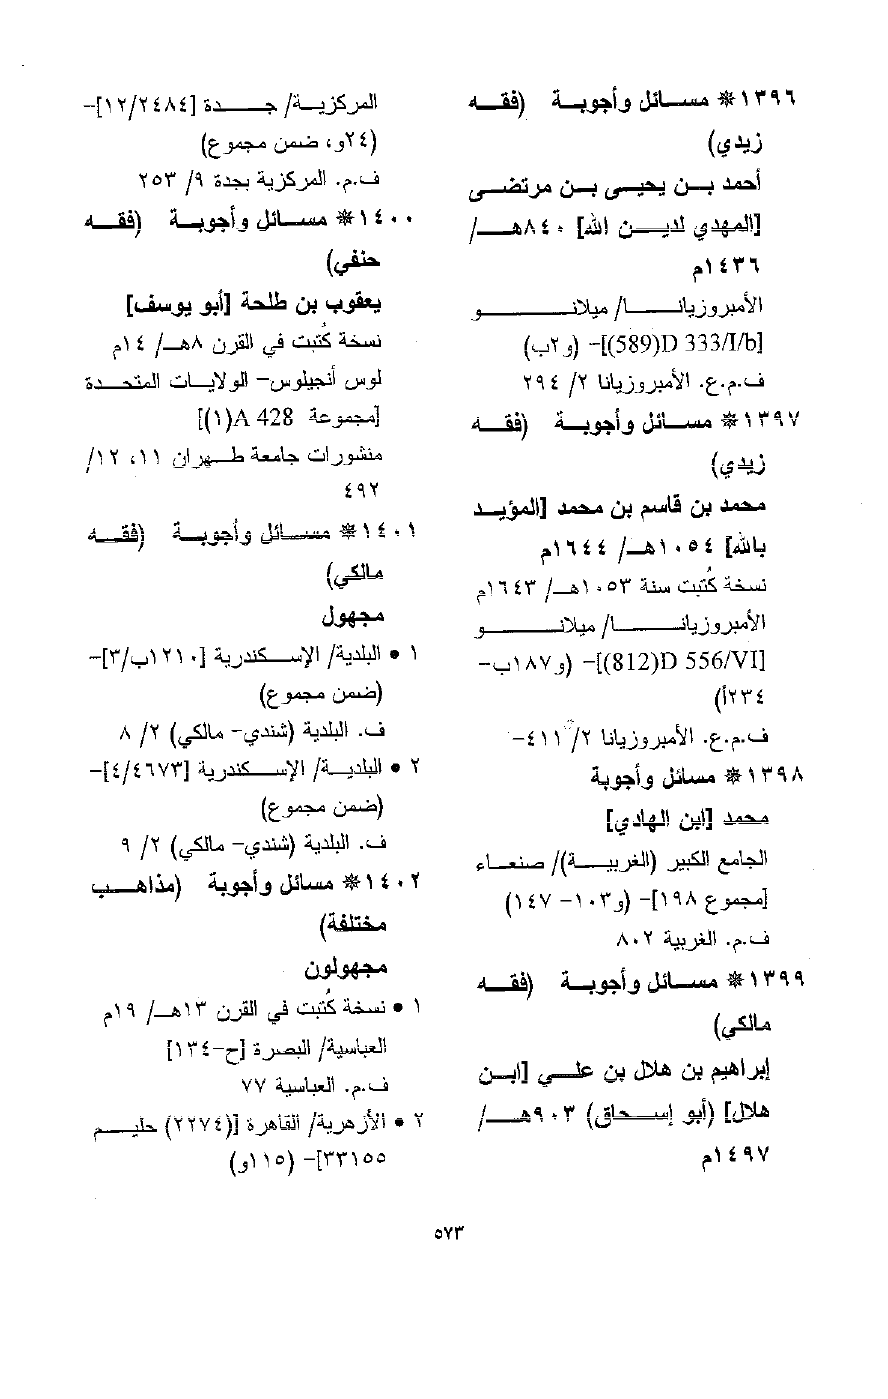 ١٣٩٦ * مسائل وأجوبة (فقه
زيدي)
أحمد بن يحيى بن مرتضى
[المهدي لدين الله] ٨٤٠هـ/
١٤٣٦م
الأمبروزيانا/ ميلانو
[D 333/I/b(589)]- (و٢ب)
ف.م.ع. الأمبروزيانا ٢/ ٢٩٤
١٣٩٧ * مسائل وأجوبة (فقه
زيدي)
محمد بن قاسم بن محمد [المؤيد
بالله] ١٠٥٤هـ/ ١٦٤٤م
نسخة كُتبت سنة ١٠٥٣هـ/ ١٦٤٣م
الأمبروزيانا/ ميلانو
[D 556/VI(812)]- (و١٨٧ب-
٢٣٤أ)
ف.م.ع. الأمبروزيانا ٢/ ٤١١-
١٣٩٨ * مسائل وأجوبة
محمد [ابن الهادي]
الجامع الكبير (الغربية)/ صنعاء
[مجموع ١٩٨]- (و١٠٣- ١٤٧)
ف.م. الغربية ٨٠٢
١٣٩٩ * مسائل وأجوبة (فقه
مالكي)
إبراهيم بن هلال بن علي [ابن
هلال] (أبو إسحاق) ٩٠٣هـ/
١٤٩٧م
المركزية/ جدة [١٢/٢٤٨٤]-
(٢٤و، ضمن مجموع)
ف.م. المركزية بجدة ٩/ ٢٥٣
١٤٠٠ * مسائل وأجوبة (فقه
حنفي)
يعقوب بن طلحة [أبو يوسف]
نسخة كُتبت في القرن ٨هـ/ ١٤م
لوس أنجيلوس- الولايات المتحدة
[مجموعة A 428(١)]
منشورات جامعة طهران ١١، ١٢/
٤٩٢
١٤٠١ * مسائل وأجوبة (فقه
مالكي)
مجهول
١ • البلدية/ الإسكندرية [١٢١٠ب/٣]-
(ضمن مجموع)
ف. البلدية (شندي- مالكي) ٢/ ٨
٢ • البلدية/ الإسكندرية [٤/٤٦٧٣]-
(ضمن مجموع)
ف. البلدية (شندي- مالكي) ٢/ ٩
١٤٠٢ * مسائل وأجوبة (مذاهب
مختلفة)
مجهولون
١ • نسخة كُتبت في القرن ١٣هـ/ ١٩م
العباسية/ البصرة [ح-١٣٤]
ف.م. العباسية ٧٧
٢ • الأزهرية/ القاهرة [(٢٢٧٤) حليم
٣٣١٥٥]- (١١٥و)
٥٧٣